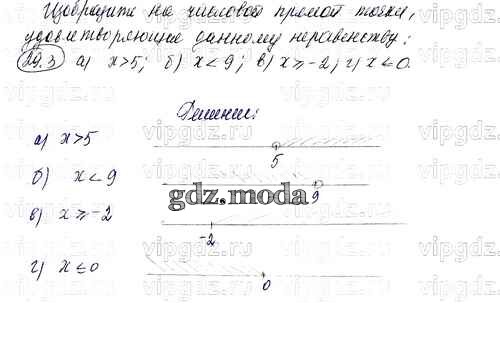 Изобразите на числовой прямой точки,
удовлетворяющие данному неравенству:
29.3 а) x>5; б) x<9; в) x≥-2; г) x≤0.
Решение:
а) x>5
5
б) x<9
9
gdz.moda
в) x≥-2
-2
г) x≤0
0
vipgdz.com